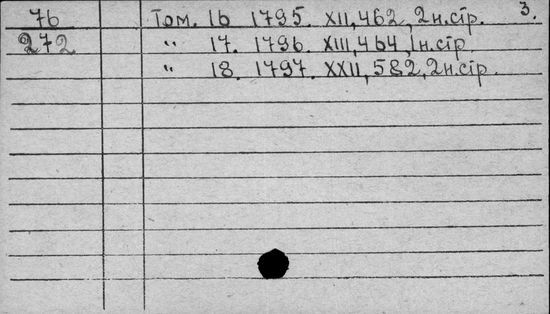 3.
76 Том. 16 1795. XII, 462, 2н.стр.
272 " 17. 1796. XIII, 464, 1н.стр
" 18. 1797. XXII, 582, 2н.стр.